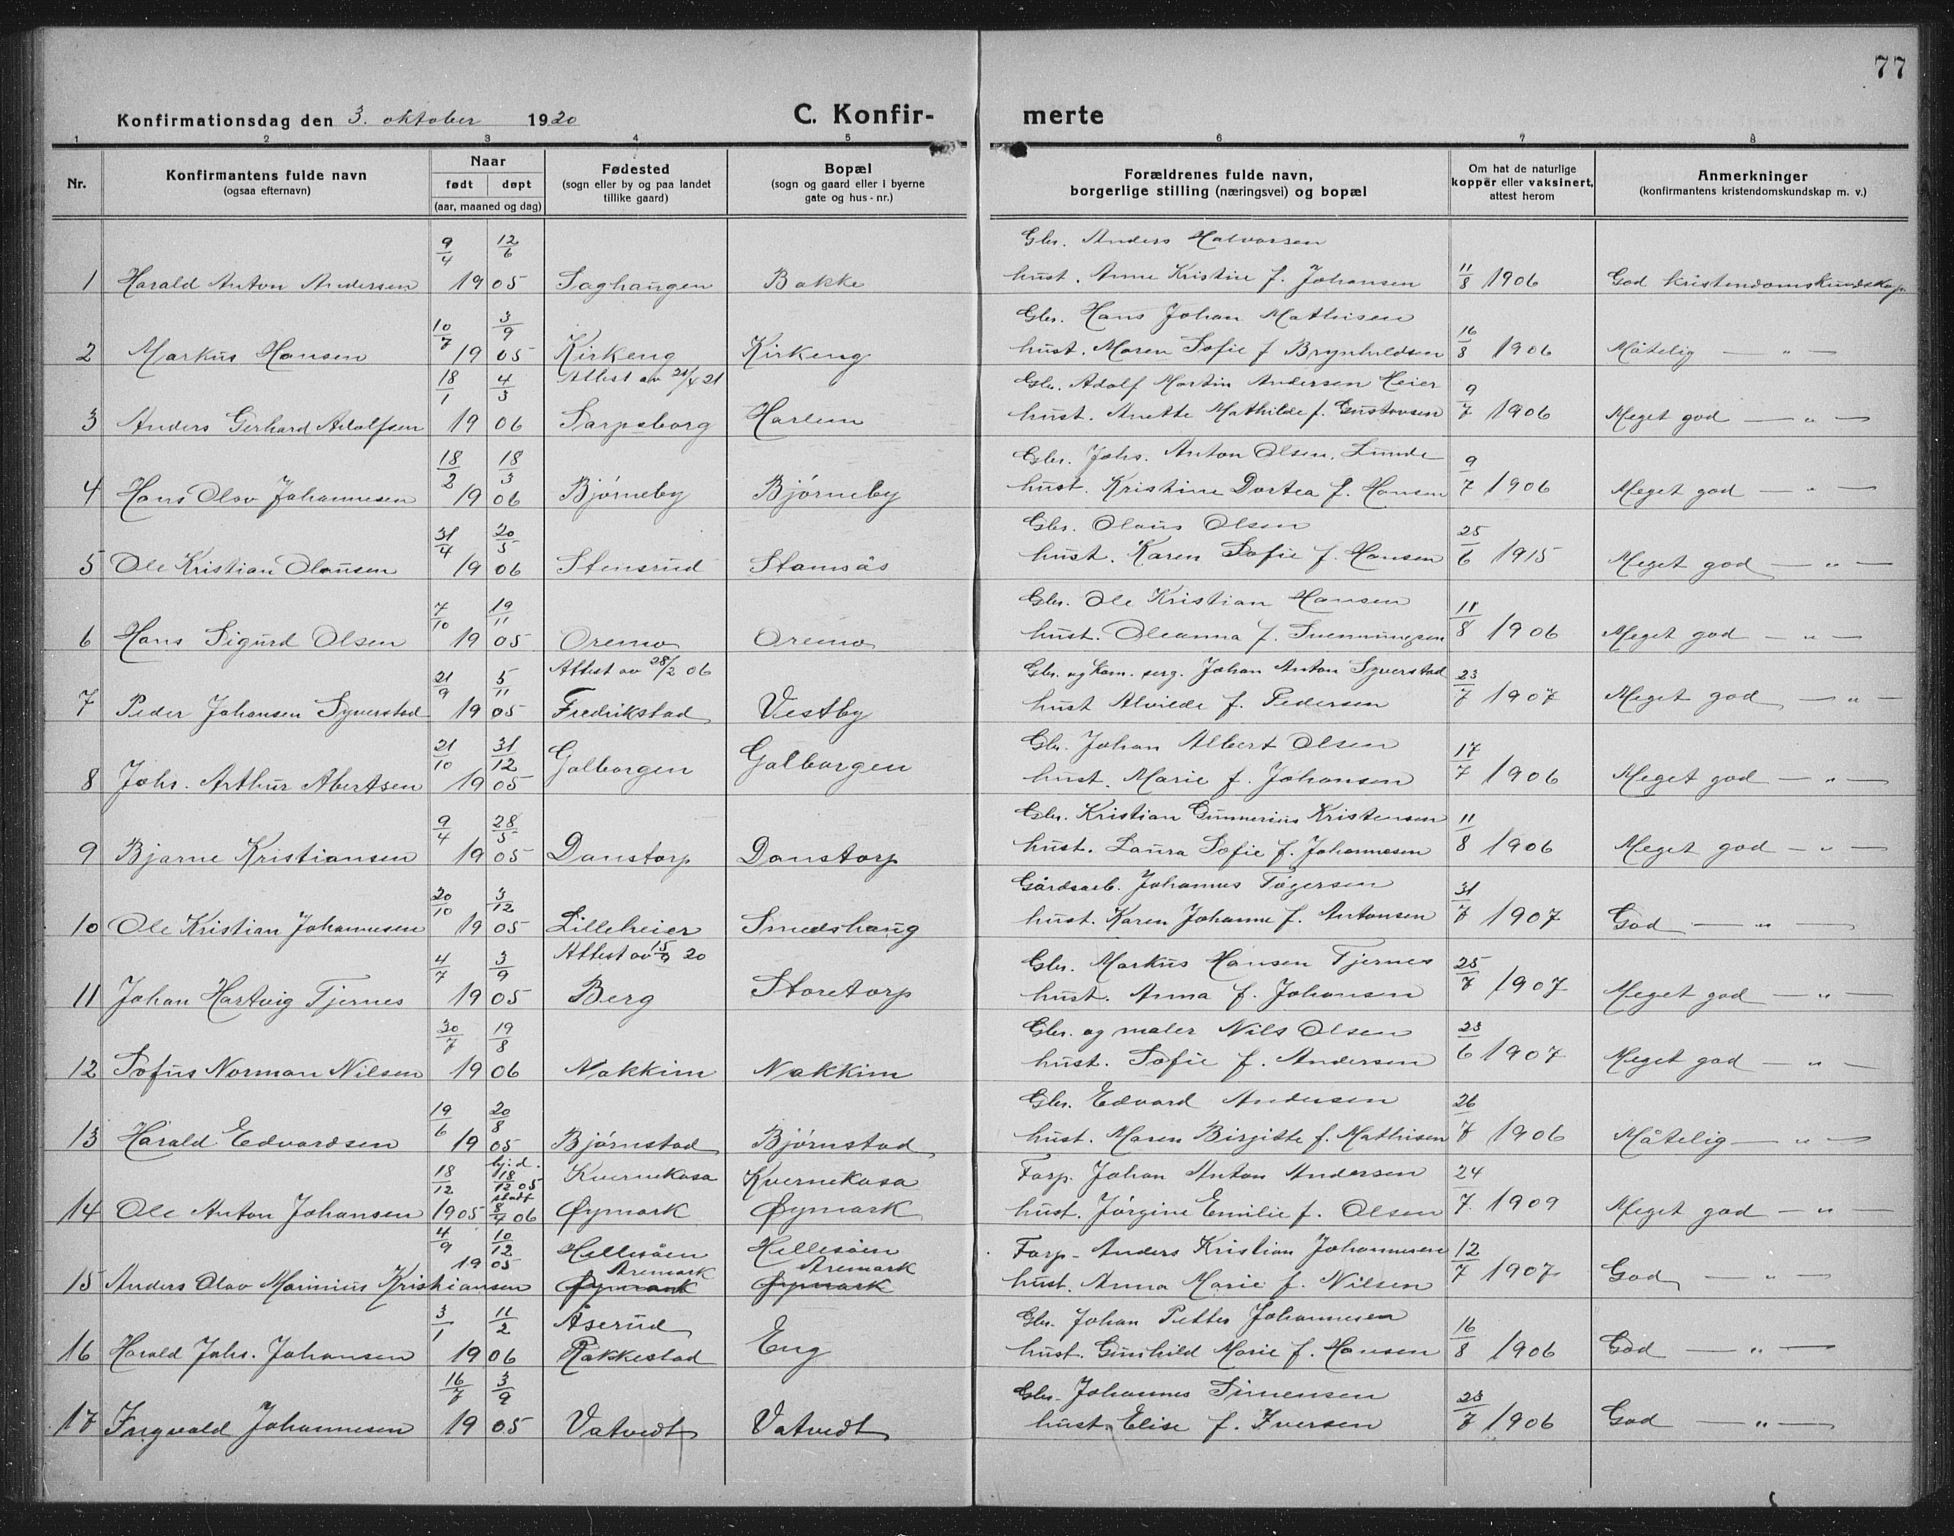 77
Konfirmationsdag den 3. oktober 1920 C. Konfir- merte
1 2 3 4 5 6 7 8
Nr. Konfirmantens fulde navn (ogsaa efternavn) Naar født døpt (aar, maaned og dag) Fødested (sogn eller by og paa landet tillike gaard) Bopæl (sogn og gaard eller i byerne gate og hus-nr.) Forældrenes fulde navn, borgerlige stilling (næringsvei) og bopæl Om hat de naturlige kopper eller vaksinert, attest herom Anmerkninger (konfirmantens kristendomskundskap m. v.)
9/4 12/6 Gbr. Anders Halvorsen
1 Harald Anton Andersen 1905 Saghaugen Bakke hust. Anne Kristine f. Johansen 11/8 1906 God kristendomskundskap
10/7 3/9 Gbr. Hans Johan Mathisen
2 Markus Hansen 1905 Kirkeng Kirkeng hust. Maren Sofie f Brynhildsen 16/8 1906 Måtelig — " —
18/1 4/3 Attest av 21/4 21 Gbr. Adolf Martin Andersen Heier
3 Anders Gerhard Adolfsen 1906 Sarpsborg Harlem hust. Anette Mathilde f. Gustavsen 9/7 1906 Meget god — " —
18/2 18/3 Gbr. Johs. Anton Olsen, Lunde
4 Hans Olav Johannesen 1906 Bjørneby Bjørneby hust. Kristine Dortea f. Hansen 9/7 1906 Meget god — " —
31/4 20/5 Gbr. Olaus Olsen
5 Ole Kristian Olausen 1906 Stensrud Stamsås hust. Karen Sofie f. Hansen 25/6 1915 Meget god — " —
7/10 19/11 Gbr. Ole Kristian Hansen
6 Hans Sigurd Olsen 1905 Oremo Oremo hust. Oleanna f. Svennungsen 11/8 1906 Meget god — " —
21/9 5/11 Attest av 28/2 06 Gbr. og kom. serg. Johan Anton Syverstad
7 Peder Johansen Syverstad 1905 Fredrikstad Vestby hust Alvilde f. Pedersen 23/7 1907 Meget god — "
21/10 31/12 Gbr. Johan Albert Olsen
8 Johs. Arthur Abertsen 1905 Galborgen Galborgen hust. Marie f. Johansen 17/7 1906 Meget god — " —
9/4 28/5 Gbr. Kristian Gunnerius Kristensen
9 Bjarne Kristiansen 1905 Danstorp Danstorp hust. Laura Sofie f. Johannesen 11/8 1906 Meget god — " —
20/10 3/12 Gårdsarb. Johannes Tøgersen
10 Ole Kristian Johannesen 1905 Lilleheier Smedshaug hust. Karen Johanne f. Antonsen 31/7 1907 God — " —
4/7 3/9 Attest av 15/9 20 Gbr. Markus Hansen Tjernes
11 Johan Hartvig Tjernes 1905 Berg Storetorp hust. Anna f. Johansen 25/7 1907 Meget god — " —
30/7 19/8 Gbr. og maler Nils Olsen
12 Sofus Norman Nilsen 1906 Nakkim Nakkim hust. Sofie f. Andersen 23/6 1907 Meget god — " —
19/6 20/8 Gbr. Edvard Andersen
13 Harald Edvardsen 1905 Bjørnstad Bjørnstad hust. Maren Birgitte f. Mathisen 26/7 1906 Måtelig — " —
18/12 hj.d. 18/12 05 Kvernekasa Kvernekasa Forp. Johan Anton Andersen
14 Ole Anton Johansen 1905 stadf 8/7 06 Øymark Øymark hust. Jørgine Emilie f. Olsen 24/7 1909 Meget god — " —
4/9 10/12 1905 Hellesåen Hellesåen Forp. Anders Kristian Johannesen
Aremark Aremark
15 Anders Olav Marinius Kristiansen Øymark Øymark hust. Anna Marie f. Nilsen 12/7 1907 God — " —
3/1 11/2 Åserud Gbr. Johan Petter Johannesen
16 Harald Johs. Johansen 1906 Rakkestad Eng hust. Gunhild Marie f. Hansen 16/8 1906 God — " —
16/7 3/9 Gbr. Johannes Simensen
17 Ingvald Johannesen 1905 Vatvedt Vatvedt hust. Elise f. Iversen 23/7 1906 God — " —